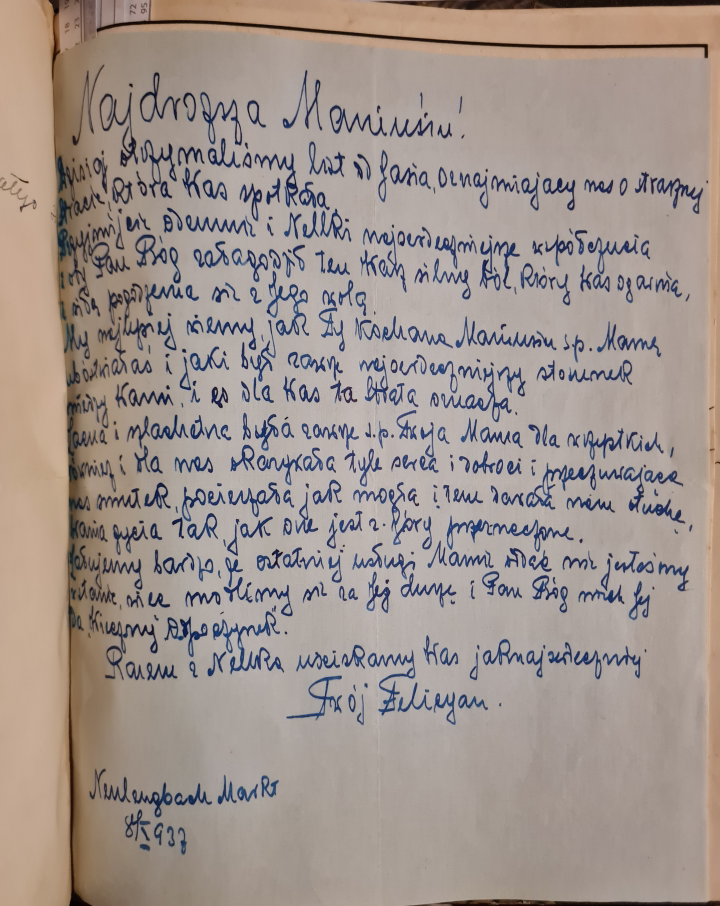 Najdroższa Maniusiu!
Dzisiaj otrzymaliśmy list od Jasia, oznajmiający nas o strasznej
stracie, która Was spotkała.
Przyjmijcie odemnie i Nellki najserdeczniejsze współczucia
i oby Pan Bóg załagodził ten Wasz silny ból, który Was ogarnia,
a siłą pogodzenia się z Jego wolą.
My najlepiej wiemy, jak Ty Kochana Maniusiu s.p. Mamę
ubóstwiałaś i jaki był zawsze najserdeczniejszy stosunek
między Wami, i co dla Was ta strata oznacza.
Zacna i szlachetna była zawsze s.p. Twoja Mama dla wszystkich,
również i dla nas okazywała tyle serca i dobroci i przeczuwająca
nas smutek, pocieszała jak mogła i tem dawała nam otuchę,
brania życia tak, jak one jest z góry przeznaczone.
Żałujemy bardzo, że ostatniej usługi Mamie oddać nie jesteśmy
w stanie, więc modlimy się za Jej duszę i Pan Bóg niech Jej
da Wieczny Odpoczynek.
Razem z Nellką uściskamy Was jaknajserdeczniej
Twój Felicyan.
Neulengbach Markt
8/X 937